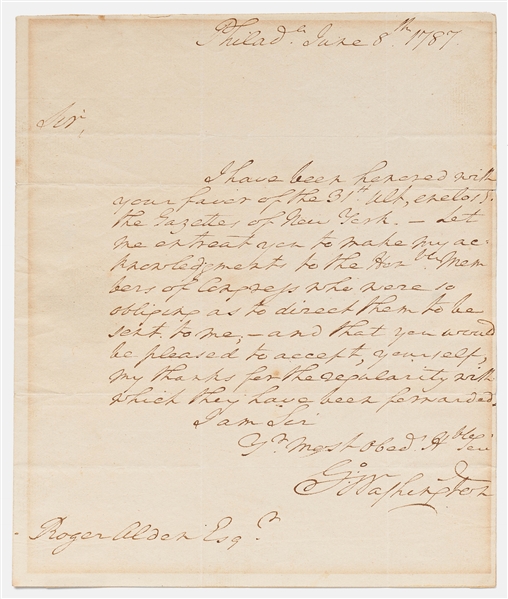 Philad.a June 8.th 1787.
Sir,
I have been honored with
your favor of the 31.st Ult, enclos.g
the Gazettes of New York. – Let
me entreat you to make my ac-
knowledgments to the Hon.ble Mem-
bers of Congress who were so
obliging as to direct them to be
sent to me, – and that you would
be pleased to accept, yourself,
my thanks for the regularity with
which they have been forwarded.
I am Sir
Yr. Most Obed. Hble Ser
Go Washington
Roger Alden Esq.r